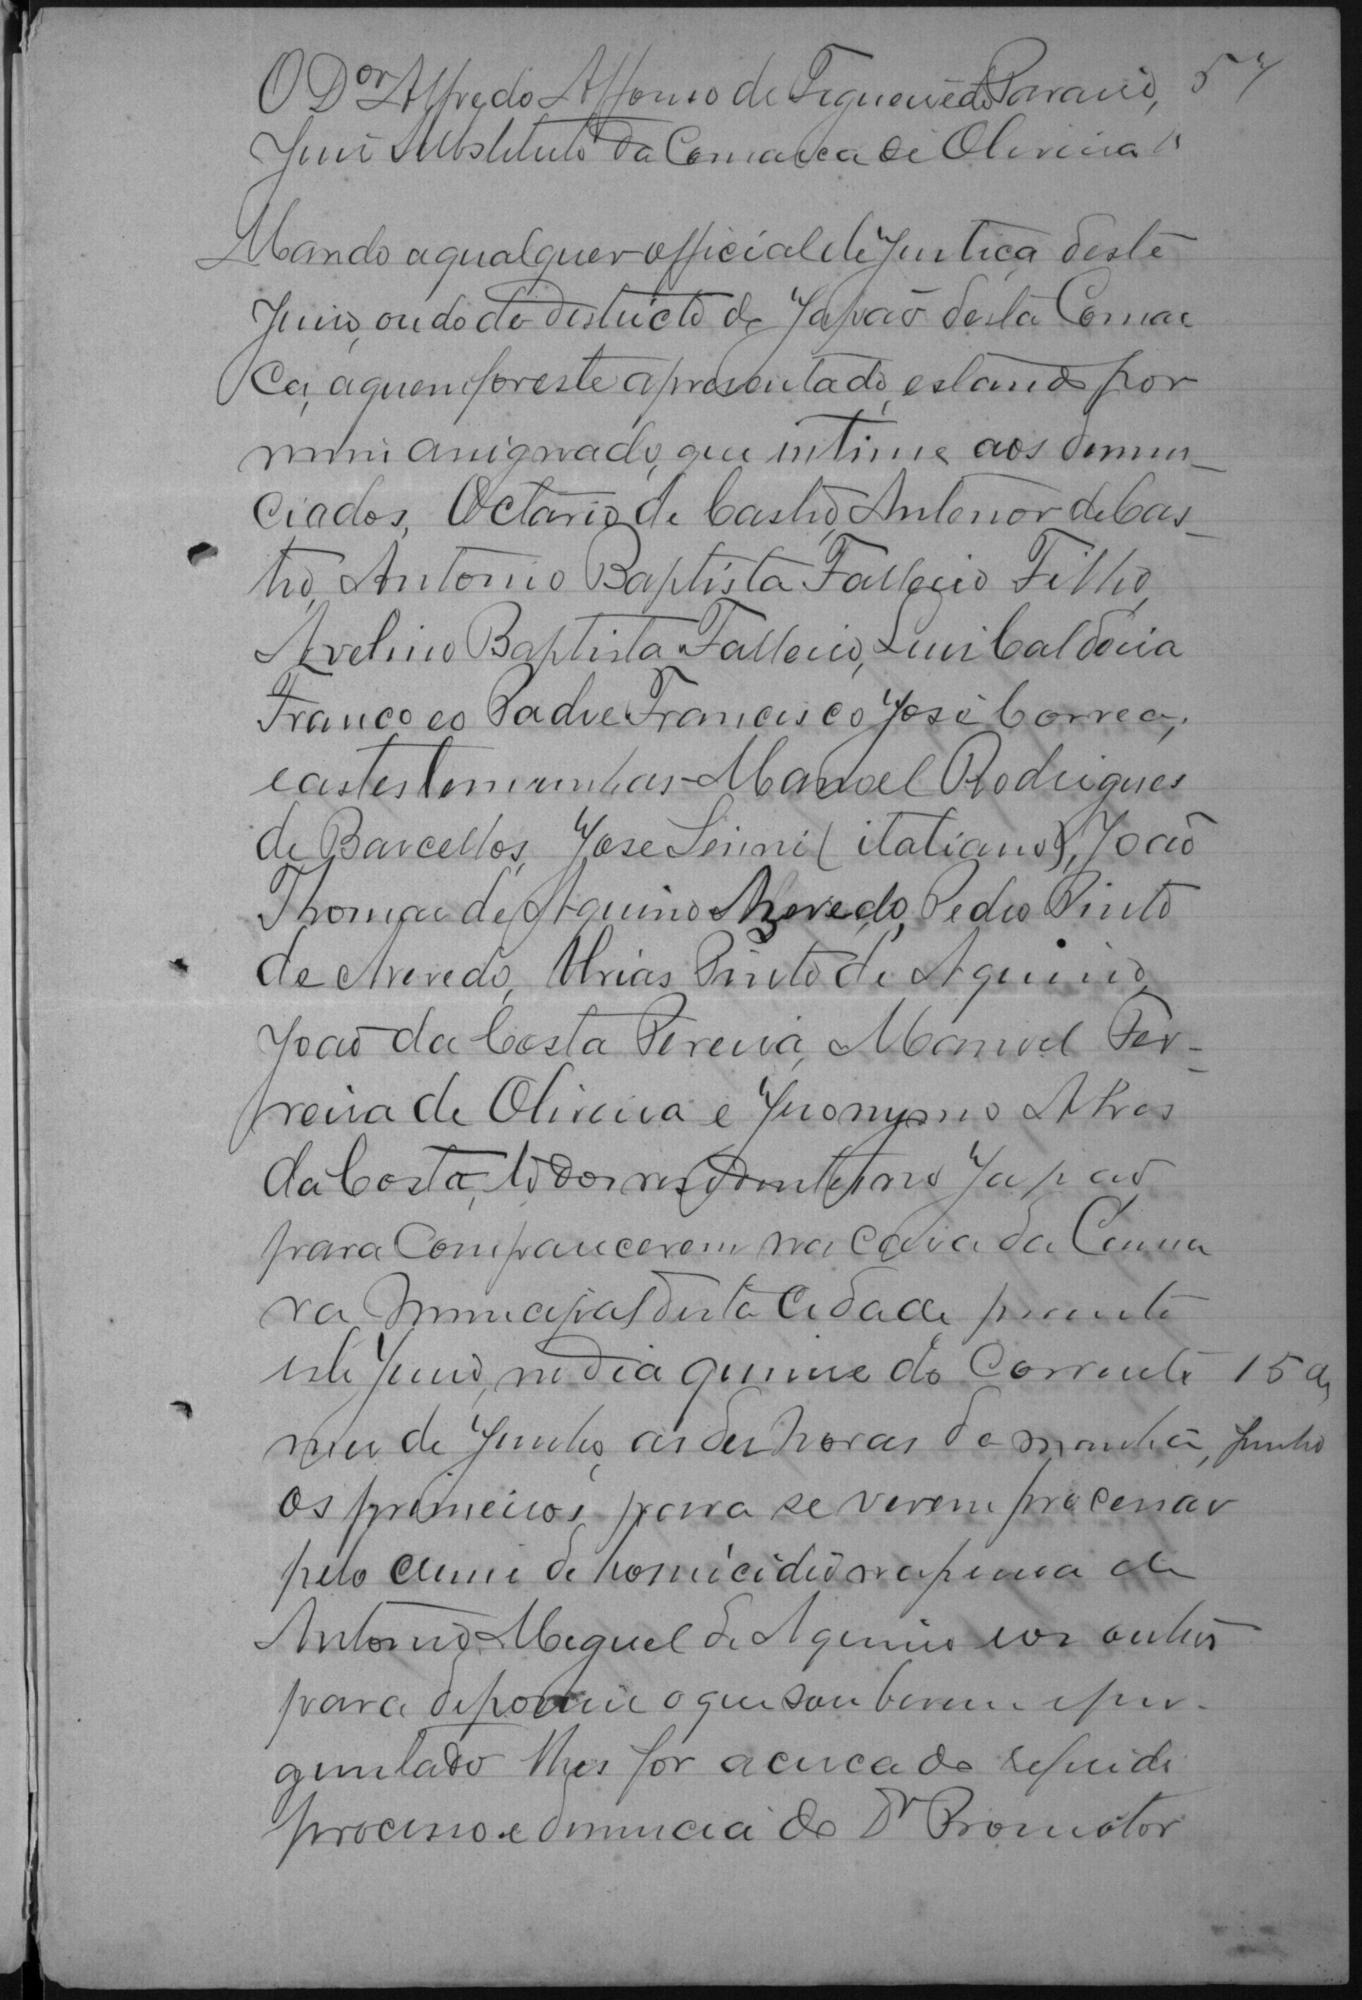 O Dor Alfredo Affonso de Figueirêdo Paraiso, 57
Juiz Substituto da Comarca de Oliveira
Mando a qualquer official de justiça deste
Juizo, ou do do districto do Japão desta Comar
ca, a quem for este apresentado, estando por
mim assignado, que intime aos denun-
ciados, Octavio de Castro, Antenor de Cas-
tro, Antonio Baptista Falleiro Filho,
Avelino Baptista Falleiro, Luiz Caldeira
Franco e o Padre Francisco José Correa,
e as testemunhas Manoel Rodrigues
de Barcellos, Jose Sinni (italiano), João
Thomaz de Aquino Azevedo, Pedro Pinto
de Azevedo, Urias Pinto de Aquino,
João da Costa Pereira, Manoel Fer-
reira de Oliveira e Jeronymo Alves
da Costa, todos residentes no Japão
para comparecerem na casa da Cama
ra Municipal desta cidade, perante
este Juizo, no dia quinze do corrente 15 de
mez de Junho, as dez horas da manhã, Junho
os primeiros, para se verem processar
pelo crime de homicidio na pessoa de
Antonio Miguel de Aquino e os outros
para deporem o que souberem e per-
guntado lhes for acerca do referido
processo e denuncia do Dr Promotor